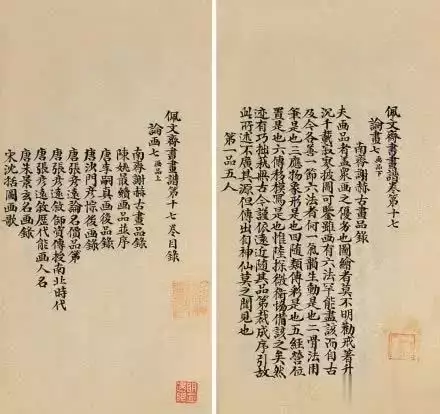 佩文齋書畫譜卷第十七
論畫七 畫品下
南齊謝赫古畫品錄
夫畫品者盖眾畫之優劣也圖繪者莫不明勸戒著升
沉千載寂寥披圖可鑒雖畫有六法罕能盡該而自古
及今各善一節六法者何一氣韻生動是也二骨法用
筆是也三應物象形是也四隨類傅彩是也五經營位
置是也六傳移模寫是也惟陸探微衛協備該之矣然
迹有巧拙藝無古今謹依遠近隨其品第裁成序引故
此所述不廣其源但傳出自神仙莫之聞見也
第一品五人
佩文齋書畫譜第十七卷目錄
論畫七 畫品上
南齊謝赫古畫品錄
陳姚最續畫品並序
唐李嗣真畫後品錄
唐沙門彥悰後畫錄
唐張彥遠論名價品第
唐張彥遠敘師資傳授南北時代
唐張彥遠敘歷代能畫人名
唐朱景玄名畫錄
宋沈括圖畫歌